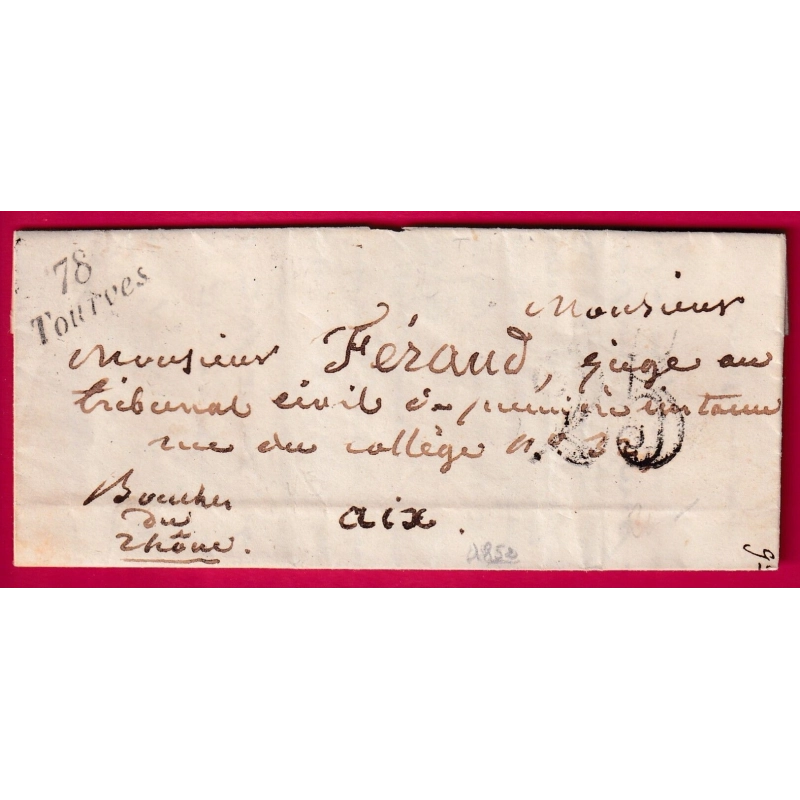 78
Tourves
Monsieur
Monsieur Féraud, juge au
tribunal civil de première instance
rue du collège n.°
25
Bouches
du
Rhône.
aix.
1852